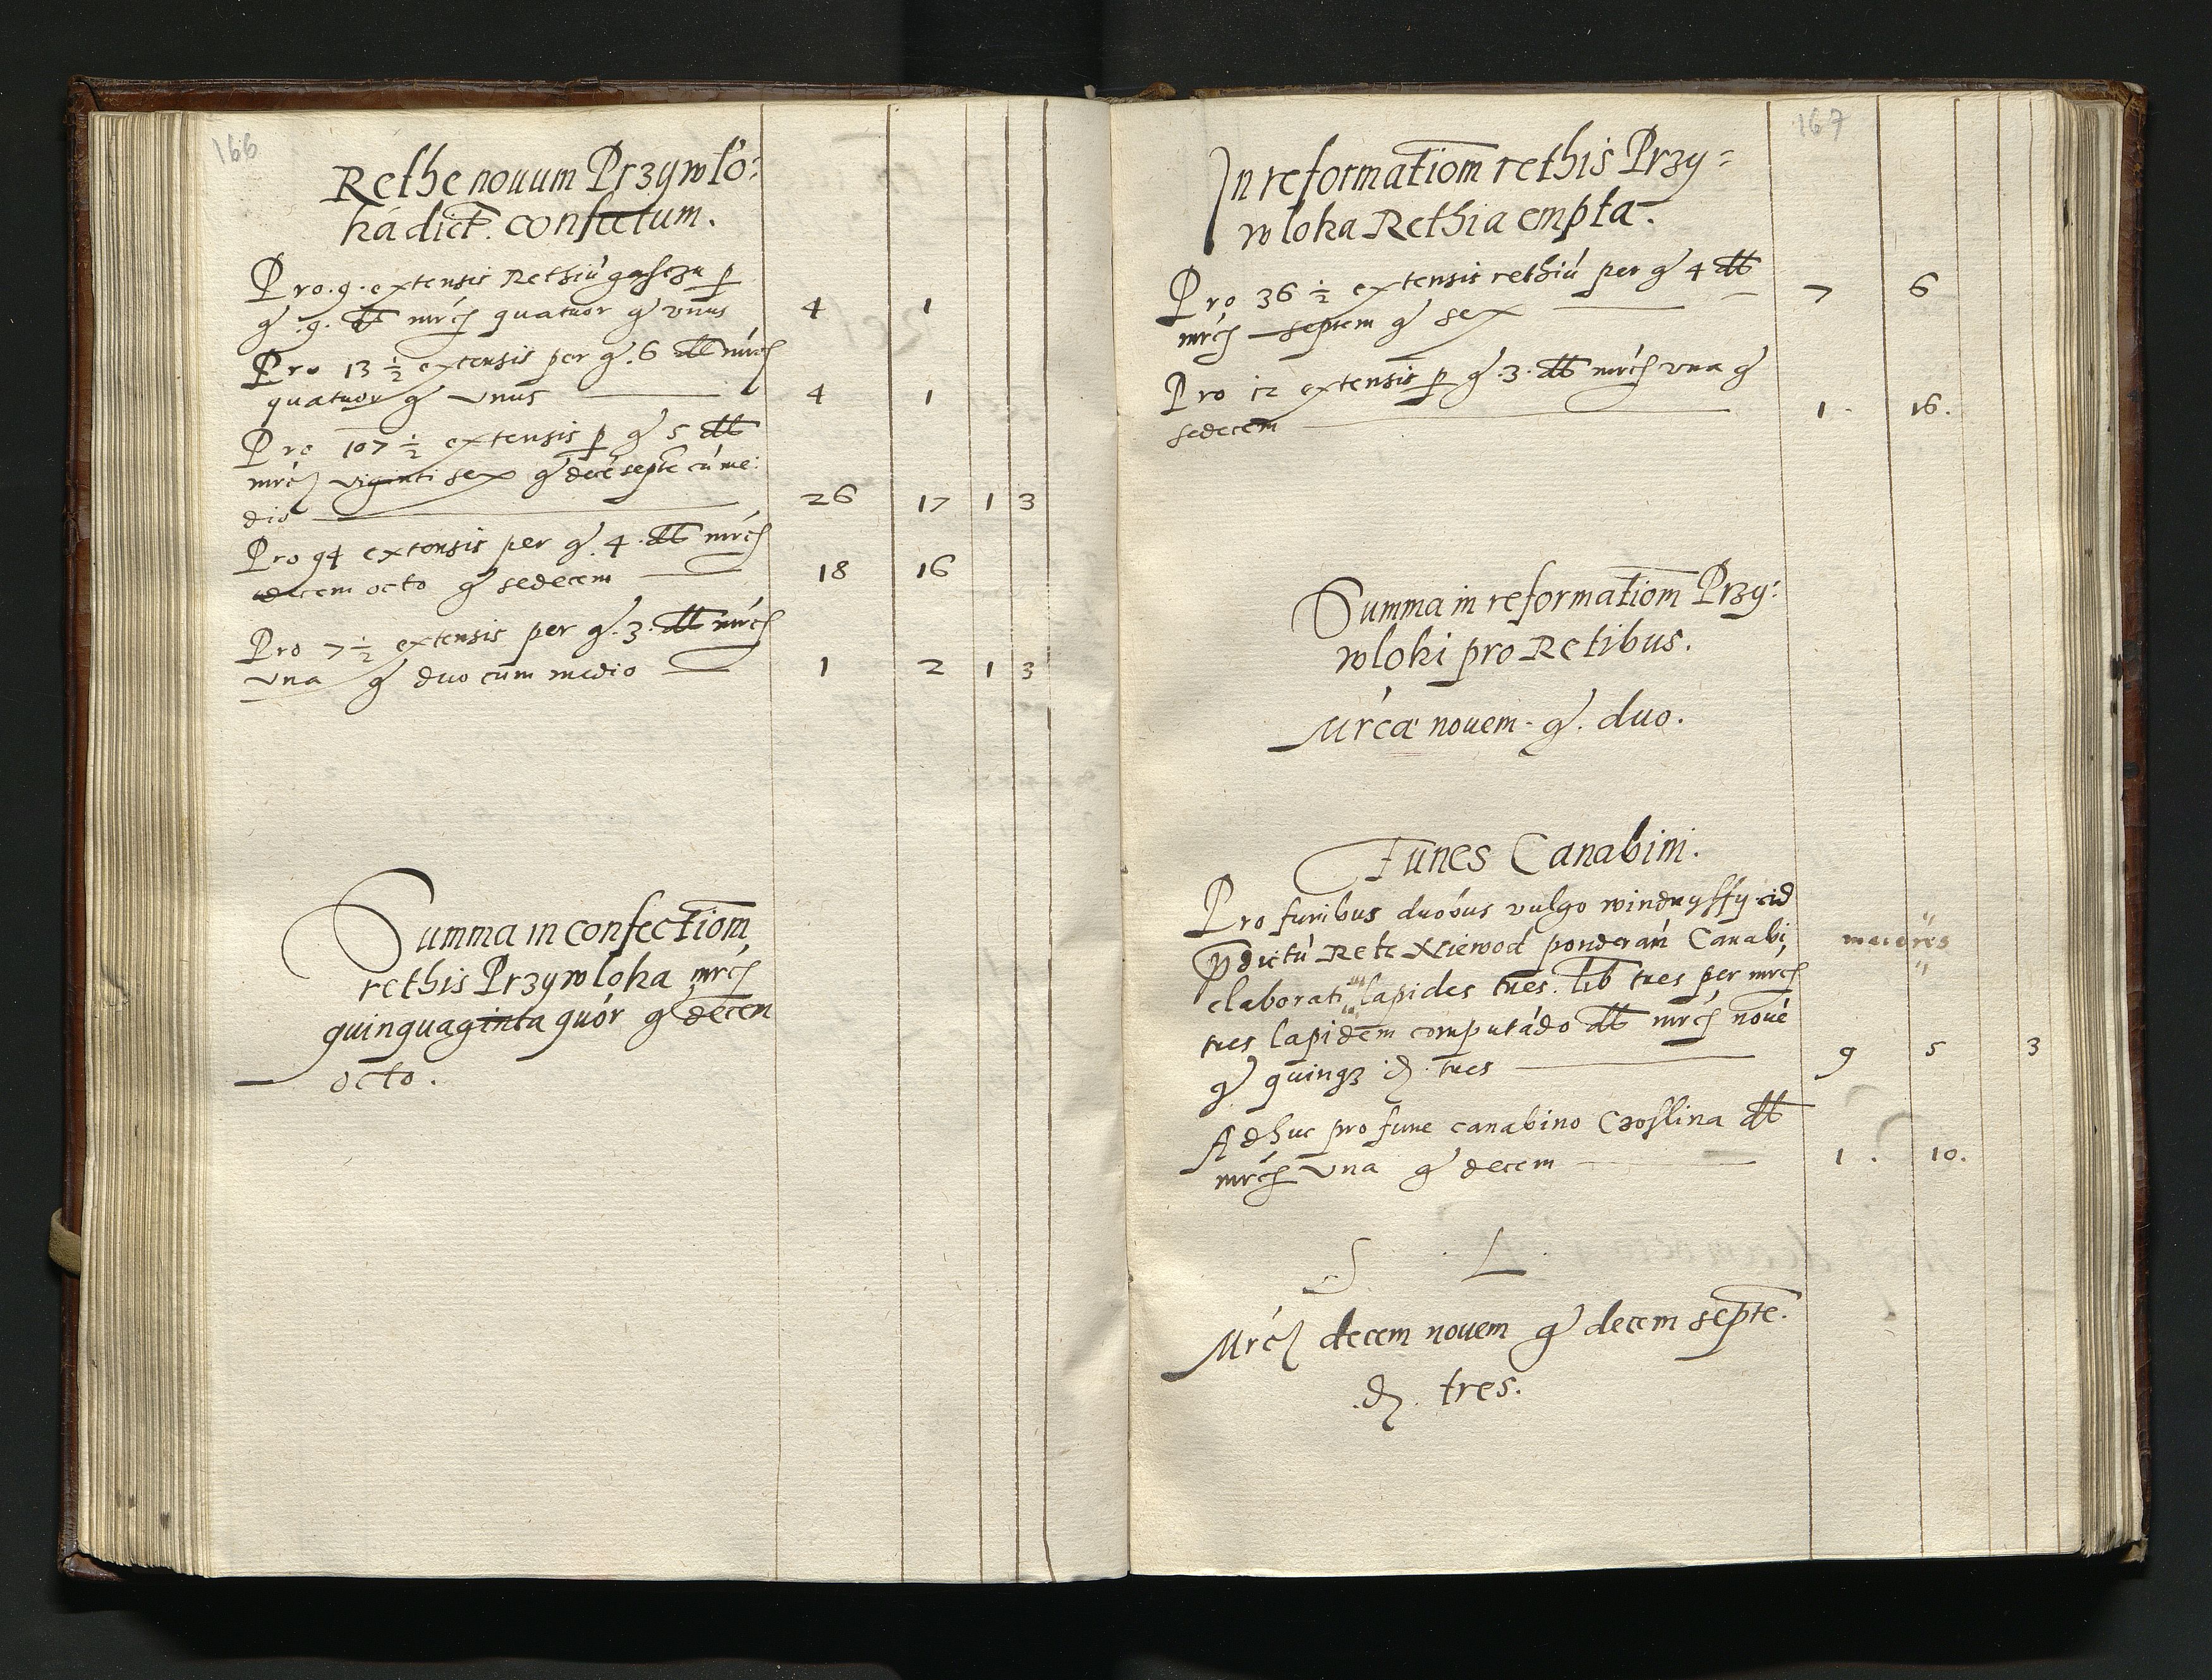 166
Rethe nouum Przywło:
ká dict. confectum.
Pro .9. extensis Rethiú p
gͦ .9. dt mrcͣ quatuor gͦ vnus 4 1
Pro 13 ½ extensis per gͦ .6 dt mrcͣ
quatuor gͦ vnus 4 1
Pro 107 ½ extensis p gͦ 5 dt
mrcͣ viginti sex gͦ decē septē cū me:
dio 26 17 1 3
Pro 94 extensis per gͦ .4. dt mrcͣ
decem octo gͦ sedecem 18 16
Pro 7 ½ extensis per gͦ .3. dt mrcͣ
vna gͦ duo cum medio 1 2 1 3
Summa in confectiom̄
rethis Przywloka mrcͣ
quinquaginta quór gͦ decem
octo.
167
In reformatiom̄ rethis Przy=
wloka Rethia empta.
Pro 36 ½ extensis rethiú per gͦ 4 dt
mrcͣ septem gͦ sex 7 6
Pro 12 extensis p gͦ .3. dt mrcͣ vna gͦ
sedecem 1. 16.
Summa in reformatiom̄ Przy:
wloki pro Retibus.
Mrcá nouem. gͦ. duo.
Funes Canabini.
Pro funibus duobus vulgo ad
p̄dictú Rete Niewod ponderań Canabi, maiores
elaborati lapides tres. lib tres per mrcͣ
tres lapidem computādo dt mrcͣ nouē
gͦ quinqȝ d. tres 9 5 3
Adhuc pro fune canabino Czoslina dt
mrcͣ vna gͦ decem 1. 10.
S . L .
Mrcͣ decem nouem gͦ decem septē.
.d. tres.